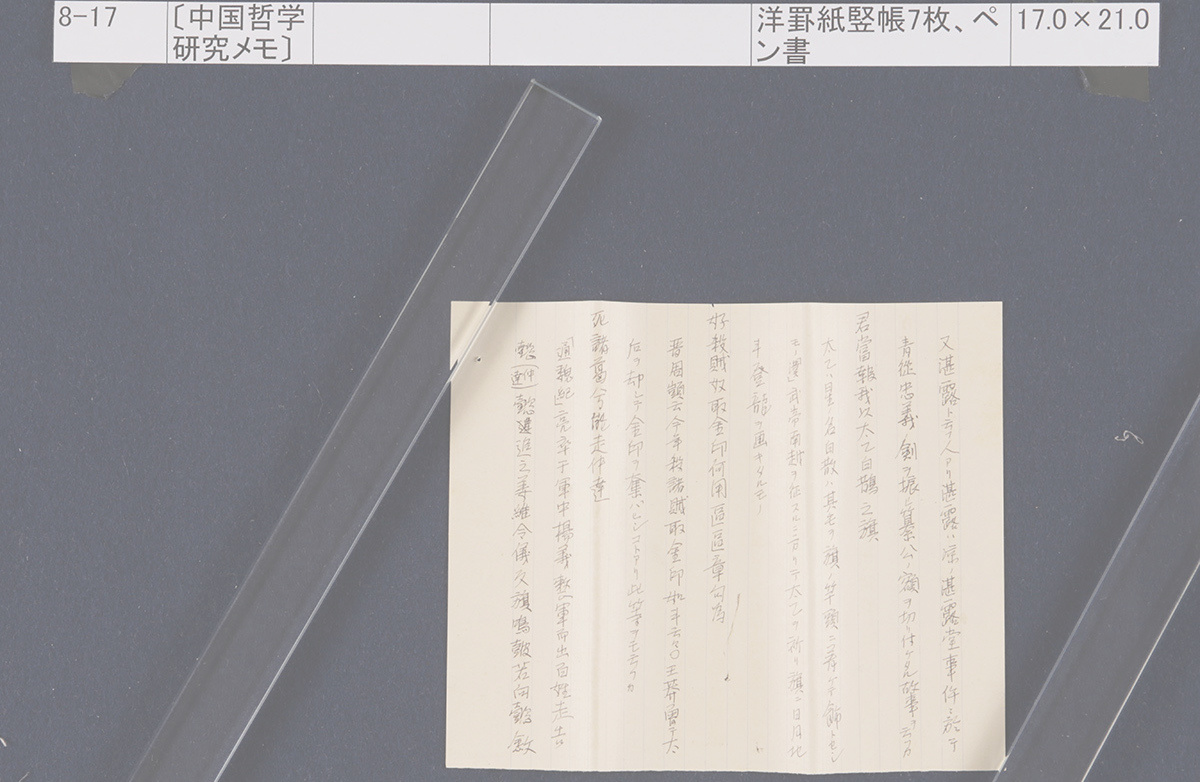 8-17
〔中国哲学
研究メモ〕
洋罫紙竪帳7枚、ペ
ン書
17.0×21.0
又湛露ト云フ人アリ湛露ハ原湛露堂事件ニ於テ
青徐忠義剣ヲ振公ノ額ヲ切リ付ケタル故事ヲ云フカ
君當報我以太乙白鵲之旗
太乙ハ星ノ名白ハ其毛ヲ旗ノ竿頭ニ飾トセシ
モノ武帝南越ヲ伐スルニテ太乙ヲ祈リ旗ニ日月北
斗登龍ヲ画キタルモノ
好殺賊奴取金印何用區區章句為
晋周顗云今年殺諸賊取金印如斗云々王莽曽テ太
后ノ却シテ金印ヲ棄バレシコトアリ此等ヲモ云フカ
死諸葛兮能走仲達
「通魏紀」亮卒于軍中楊儀整軍而出百姓走告
懿(仲達)懿進之姜維令儀反旗鳴鼓若向懿